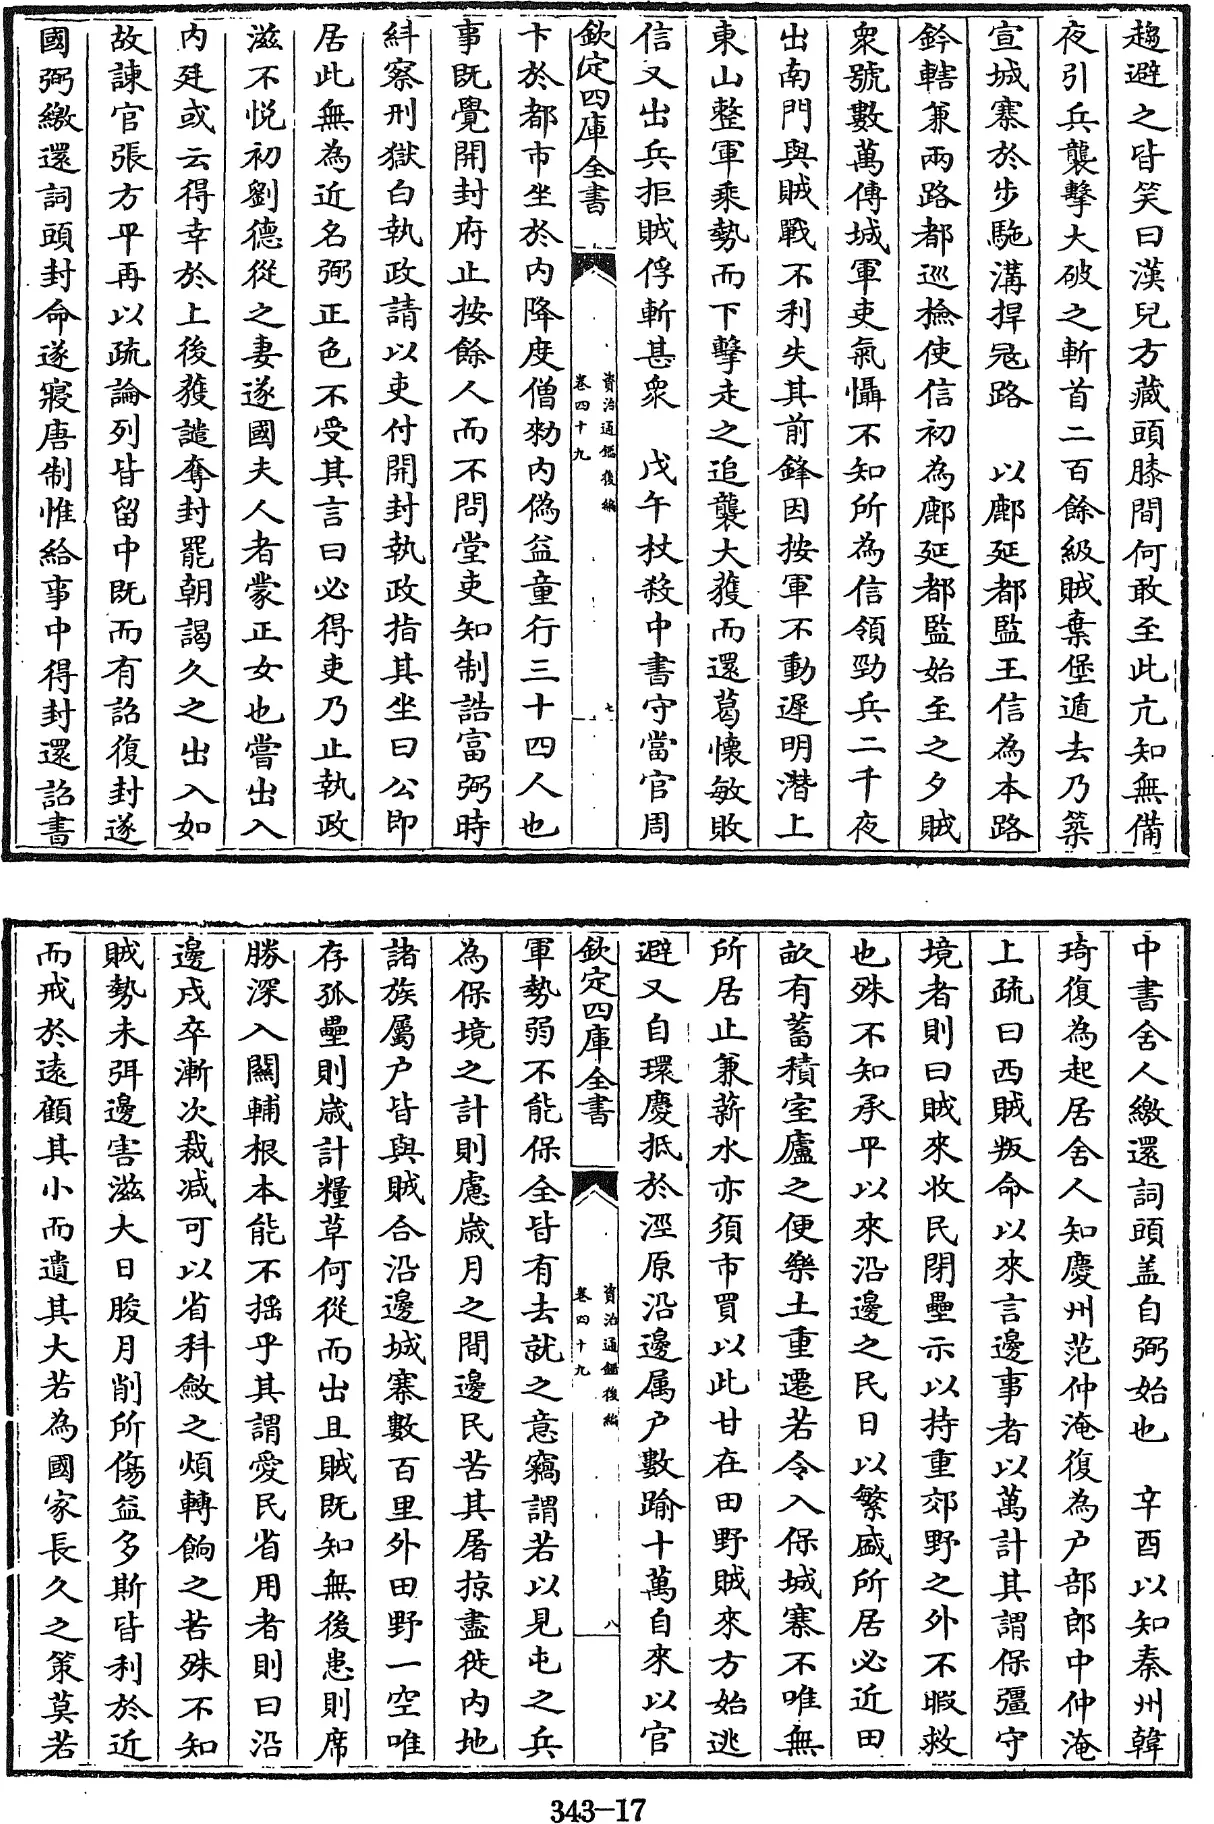 趨避之皆笑曰漢兒方藏頭膝間何敢至此亢知無備
夜引兵襲擊大破之斬首二百餘級賊棄堡遁去乃築
宣城寨於步駞溝捍冦路　以鄜延都監王信為本路
鈐轄兼兩路都巡檢使信初為鄜延都監始至之夕賊
衆號數萬傅城軍吏氣懾不知所為信領勁兵二千夜
出南門與賊戰不利失其前鋒因按軍不動遲明潛上
東山整軍乘勢而下擊走之追襲大獲而還葛懷敏敗
信又出兵拒賊俘斬甚衆　戊午杖殺中書守當官周
欽定四庫全書
資治通鑑後編
卷四十九
七
卞於都市坐於内降度僧勑内偽益童行三十四人也
事既覺開封府止按餘人而不問堂吏知制誥富弼時
糾察刑獄白執政請以吏付開封執政指其坐曰公即
居此無為近名弼正色不受其言曰必得吏乃止執政
滋不悦初劉德從之妻遂國夫人者蒙正女也嘗出入
内廷或云得幸於上後獲譴奪封罷朝謁久之出入如
故諫官張方平再以疏論列皆留中既而有詔復封遂
國弼繳還詞頭封命遂寢唐制惟給事中得封還詔書
中書舍人繳還詞頭盖自弼始也　辛酉以知秦州韓
琦復為起居舍人知慶州范仲淹復為户部郎中仲淹
上疏曰西賊叛命以來言邊事者以萬計其謂保彊守
境者則曰賊來收民閉壘示以持重郊野之外不暇救
也殊不知承平以來沿邊之民日以繁盛所居必近田
畝有蓄積室廬之便樂土重遷若令入保城寨不唯無
所居止兼薪水亦須市買以此甘在田野賊來方始逃
避又自環慶抵於涇原沿邊属户數踰十萬自來以官
欽定四庫全書
資治通鑑後編
卷四十九
八
軍勢弱不能保全皆有去就之意竊謂若以見屯之兵
為保境之計則慮歲月之間邊民苦其屠掠盡徙内地
諸族屬户皆與賊合沿邊城寨數百里外田野一空唯
存孤壘則歲計糧草何從而出且賊既知無後患則席
勝深入關輔根本能不揺乎其謂愛民省用者則曰沿
邊戍卒漸次裁减可以省科斂之煩轉餉之苦殊不知
賊勢未弭邊害滋大日朘月削所傷益多斯皆利於近
而戒於遠顧其小而遺其大若為國家長久之策莫若
343-17